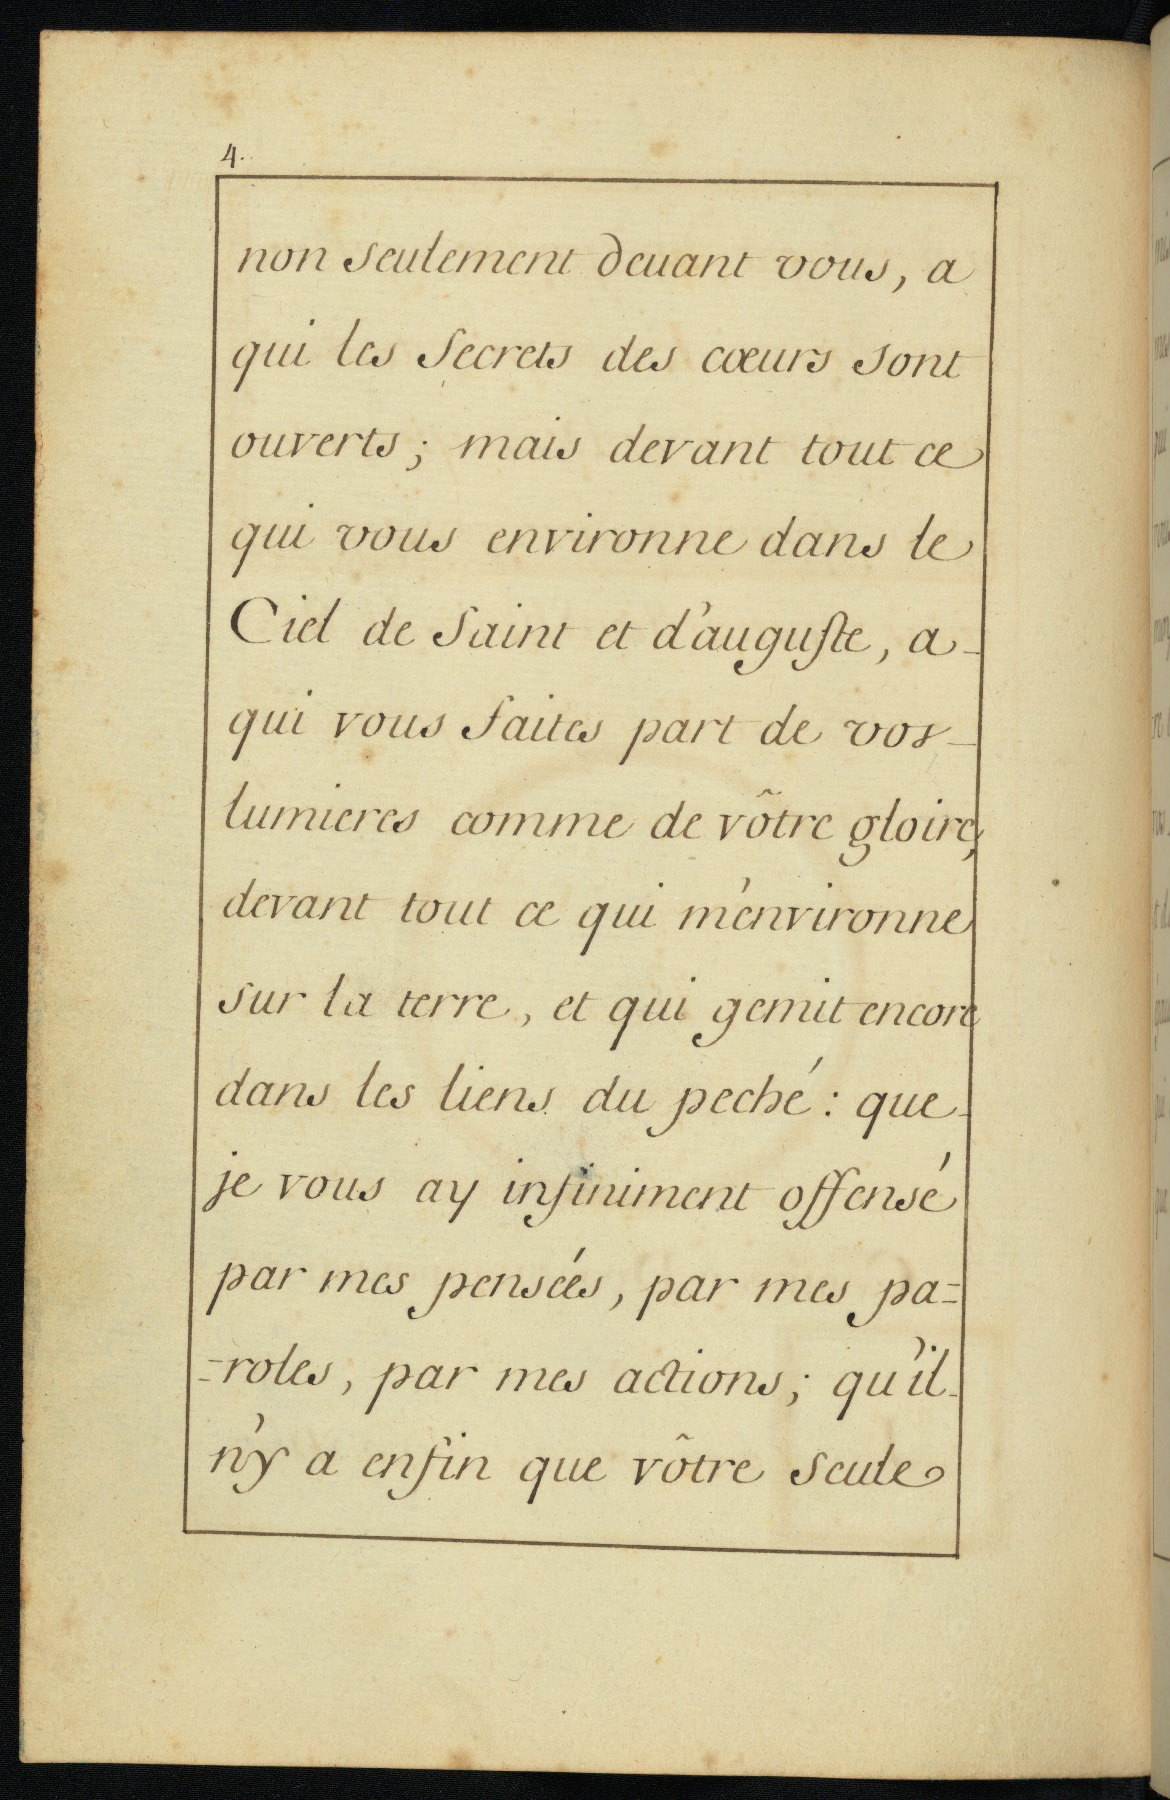 4.
non seulement deuant vous, a
qui les secrets des cœurs sont
ouverts; mais devant tout ce
qui vous environne dans le
Ciel de saint et d'auguste, a-
qui vous faites part de vos-
lumieres comme de vôtre gloire,
devant tout ce qui m'environne
sur la terre, et qui gemit encore
dans les liens du peché: que-
je vous ay infiniment offensé
par mes pensées, par mes pa=
=roles, par mes actions; qu'il-
n'y a enfin que vôtre seule